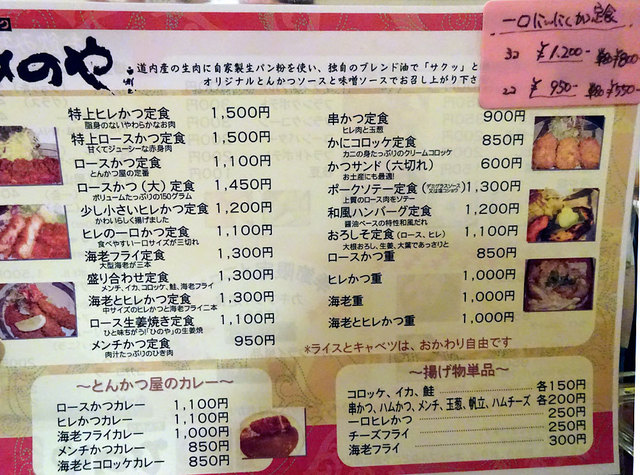 のや
道内産の生肉に自家製生パン粉を使い、独自のブレンド油で「サクッ」と
オリジナルとんかつソースと味噌ソースでお召し上がり下さ
一口にんにくカツ定食
3コ ¥1,200-
2コ ¥950-
特上ヒレかつ定食 1,500円
脂身のないやわらかなお肉
特上ロースかつ定食 1,500円
甘くてジューシーな赤身肉
ロースかつ定食 1,100円
とんかつ屋の定番
ロースかつ（大）定食 1,450円
ボリュームたっぷりの150グラム
少し小さいヒレかつ定食 1,200円
かわいらしく揚げました
ヒレの一口かつ定食 1,100円
食べやすい一口サイズが三切れ
海老フライ定食 1,300円
大型海老が三本
盛り合わせ定食 1,300円
メンチ、イカ、コロッケ、鮭、海老フライ
海老とヒレかつ定食 1,300円
中サイズのヒレかつと海老フライ二本
ロース生姜焼き定食 1,100円
ひと味ちがう！「ひのや」の生姜焼
メンチかつ定食 950円
肉汁たっぷりのひき肉
串かつ定食 900円
ヒレ肉と玉葱
かにコロッケ定食 850円
カニの身たっぷりのクリームコロッケ
かつサンド（六切れ） 600円
お土産にも最適！
ポークソテー定食 1,300円
上質のロース肉をソテー
和風ハンバーグ定食 1,200円
醤油ベースの特性和風だれ
おろしそ定食（ロース、ヒレ） 1,100円
大根おろし、生姜、大葉であっさりと
ロースかつ重 850円
ヒレかつ重 1,000円
海老重 1,000円
海老とヒレかつ重 1,000円
*ライスとキャベツは、おかわり自由です
〜とんかつ屋のカレー〜
ロースかつカレー 1,100円
ヒレかつカレー 1,100円
海老フライカレー 1,000円
メンチかつカレー 850円
海老とコロッケカレー 850円
〜揚げ物単品〜
コロッケ、イカ、鮭 各150円
串かつ、ハムかつ、メンチ、玉葱、帆立、ハムチーズ 各200円
一口ヒレかつ 250円
チーズフライ 250円
海老フライ 300円